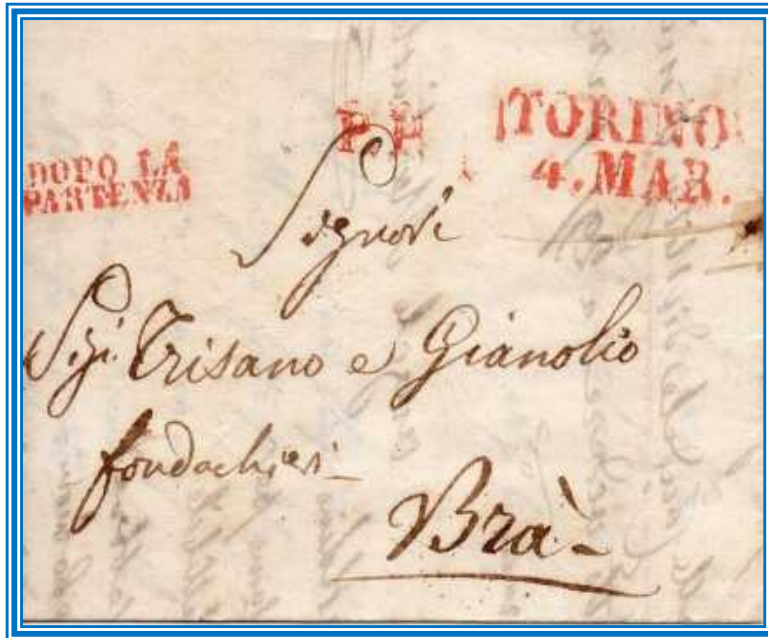 DOPO LA
PARTENZA
P.P.
TORINO
4. MAR.
Signori
Sigi. Trisano e Gianolio
fondachieri
Brà